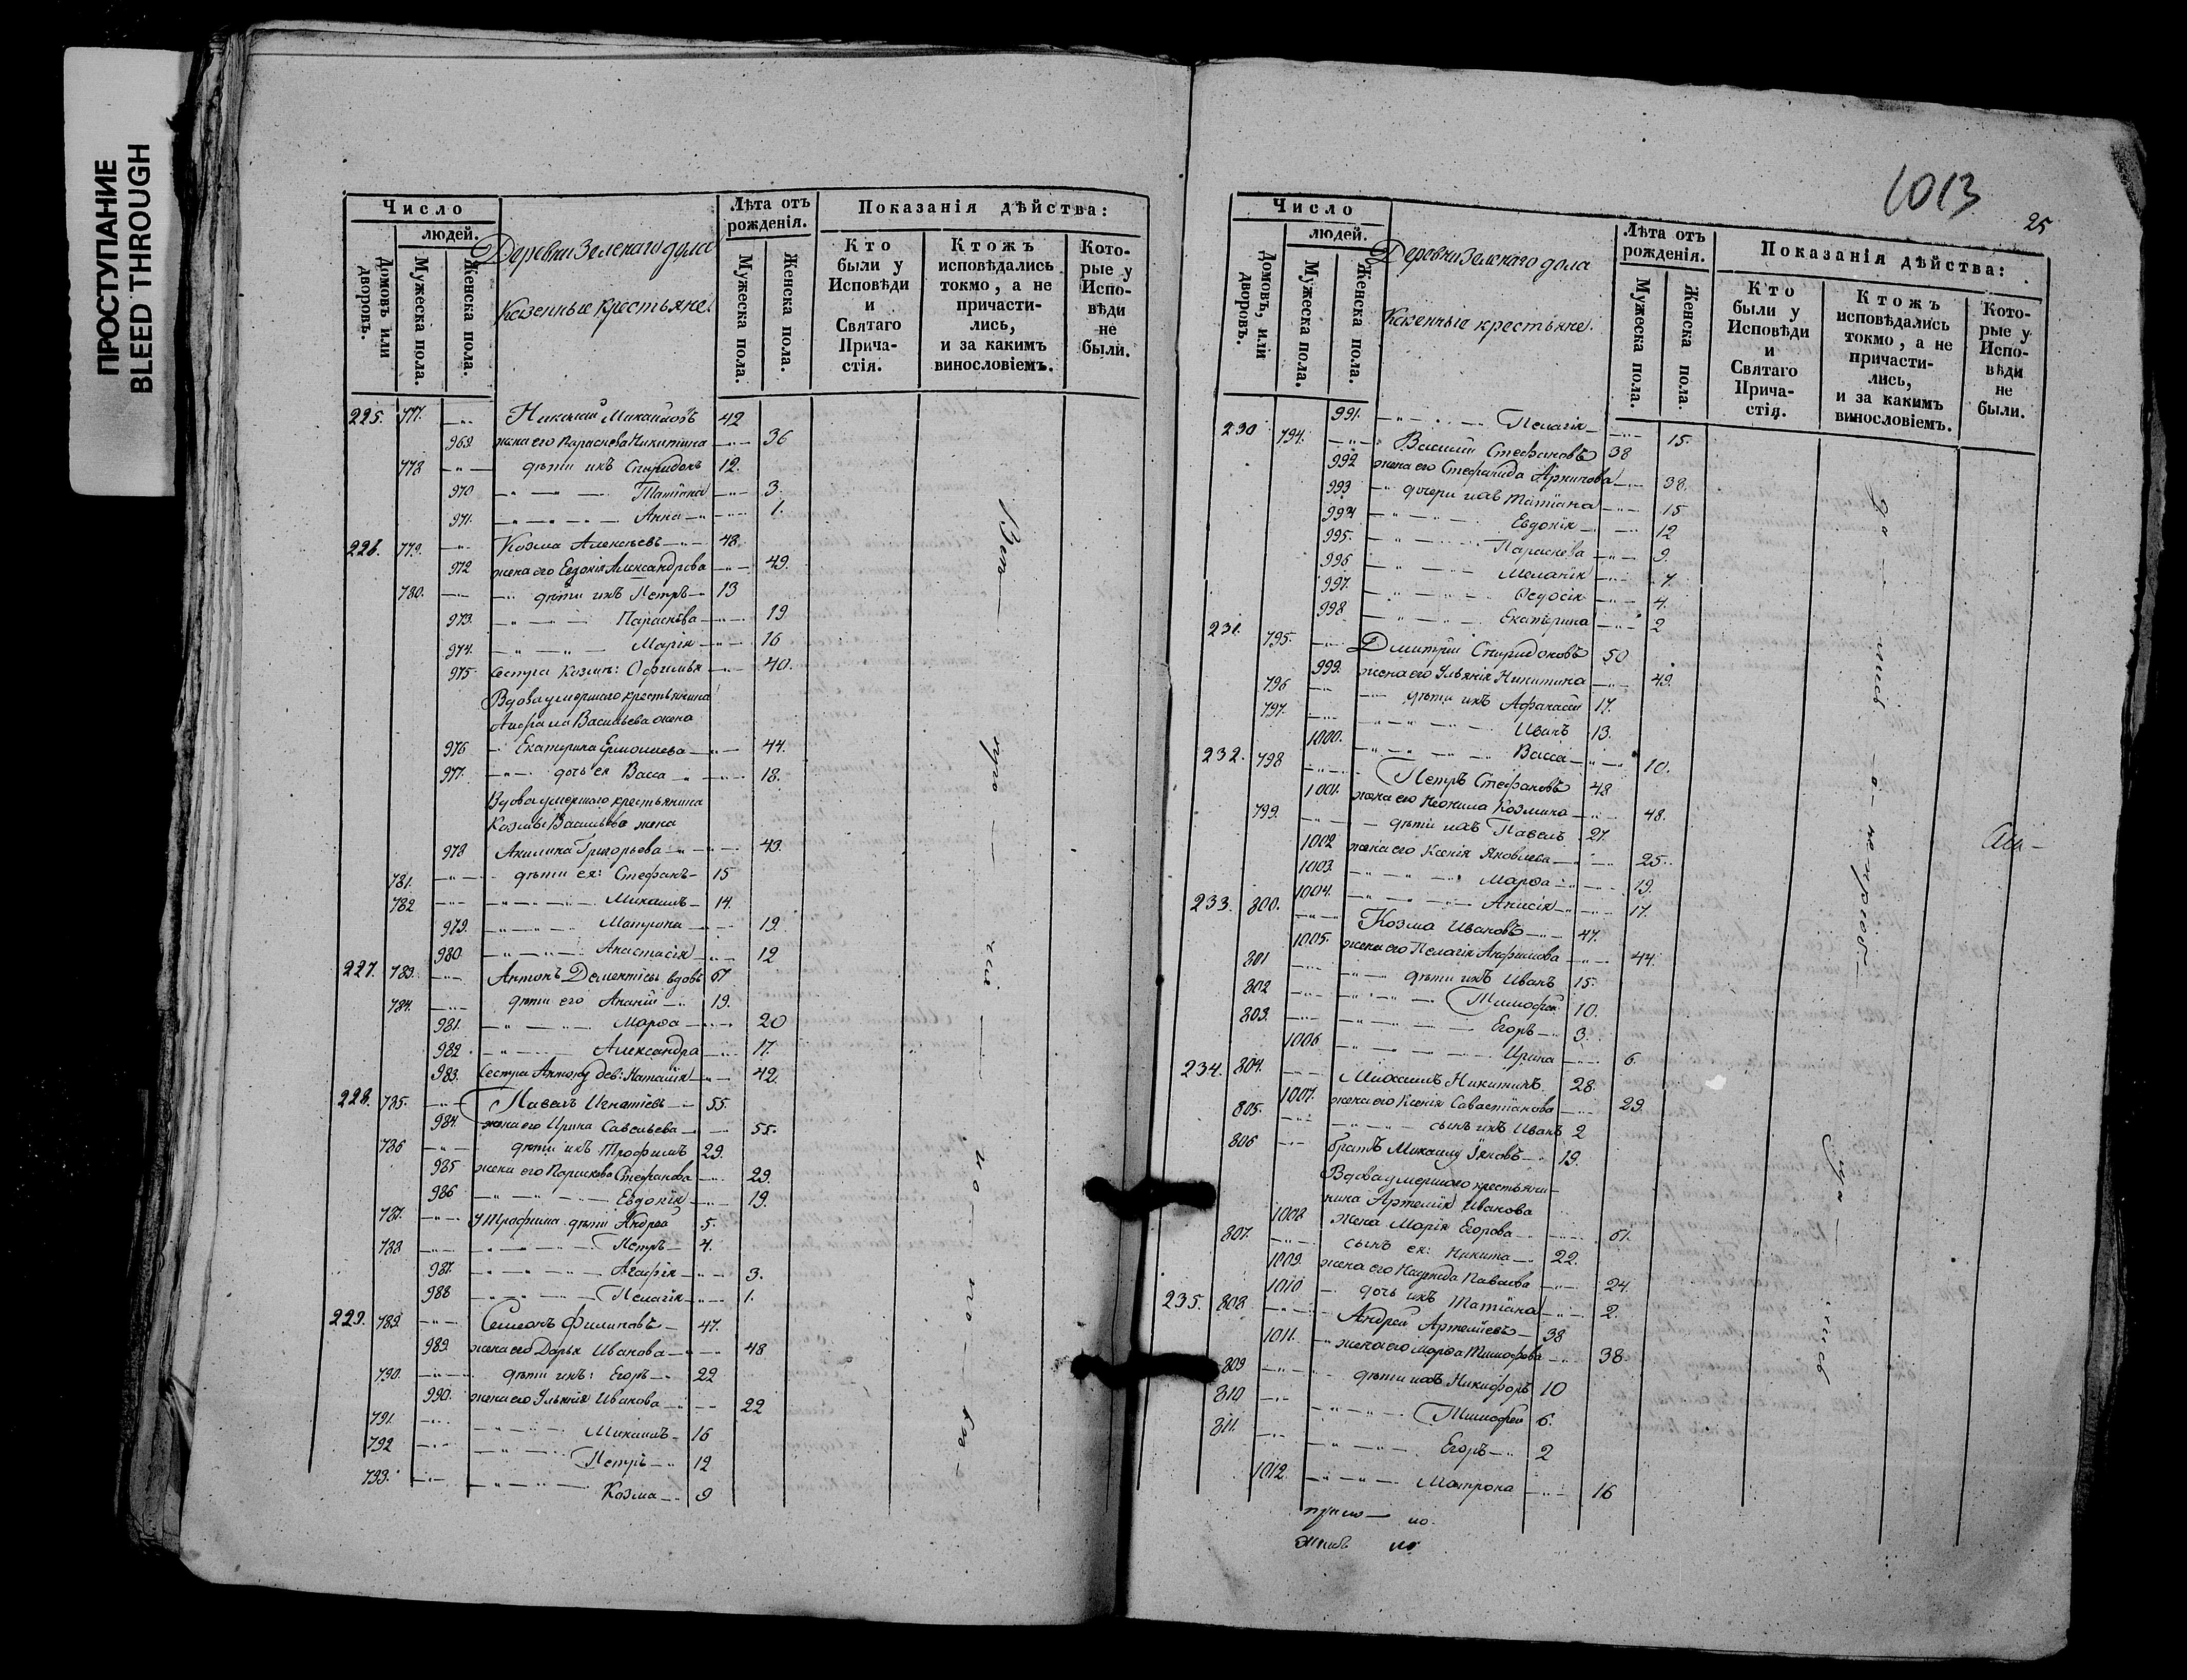 ПРОСТУПАНИЕ
BLEED THROUGH
1013
25
Число
людей.
Домовъ или дворовъ.
Мужеска пола.
Женска пола.
Деревни Зеленаго дола
Казенные крестьяне.
Лѣта отъ рожденія.
Мужеска пола.
Женска пола.
Показанія дѣйства:
Кто были у Исповѣди и Святаго Прича-стія.
Ктожъ исповѣдались токмо, а не причасти-лись, и за какимъ винословіемъ.
Кото-рые у Испо-вѣди не были.
225. 777. Николай Михайловъ 42
969. жена его Параскева Никитина 36
778 дѣти ихъ Спиридонъ 12.
970 Татіана 3.
971. Анна 1.
226. 779. Козма Алексѣевъ 48.
972 жена его Евдокія Александрова 49.
780. дѣти ихъ Петръ 13
973. Параскева 19
974. Марія 16
975. Сестра Козмы: Офимья 40.
Вдова умершаго крестьянина
Васильева жена
976 Екатерина 44.
977. дочь ея Васса 18.
Вдова умершаго крестьянина
Козмы Васильева жена
978 Акилина Григорьева 43.
781. дѣти ея: Стефанъ 15
782 Михаилъ 14.
979. Матрона 19.
980. Анастасія 12
227. 783. Антонъ Дементіевъ вдовъ 67
784. дѣти его Ананій 19.
981. Марѳа 20
982 Александра 17.
983. Сестра Антону дев: Наталія 42.
228. 785. Павелъ Игнатіевъ 55.
984. жена его Ирина Савельева 55.
786 дѣти ихъ Трофимъ 29.
985 жена его Параскева Стефанова 29.
986 Евдокія 19.
787. У Трофима дѣти Андрей 5.
788 Петръ 4.
987. Агафія 3.
988 Пелагія 1.
229. 789. Симеонъ Филиповъ 47.
989 жена его Дарья Иванова 48
790. дѣти ихъ: Егоръ 22
990. жена его Ульянія Иванова 22
791. Михаилъ 16
792 Петръ 12
793. Козма 9
Число
людей.
Домовъ, или дворовъ.
Мужеска пола.
Женска пола.
Деревни Зеленаго дола
Казенные крестьяне.
Лѣта отъ рожденія.
Мужеска пола.
Женска пола.
Показанія дѣйства:
Кто были у Исповѣди и Святаго Прича-стія.
Ктожъ исповѣдались токмо, а не причасти-лись, и за какимъ винословіемъ.
Кото-рые у Испо-вѣди не были.
991. Пелагія 15.
230 794. Василій Стефановъ 38
992 жена его Степанида 38.
993 дочери ихъ Татіана 15
994 Евдокія 12
995. Параскева 9.
996 Меланія 7.
997. Ѳедосія 4.
998 Екатерина 2
231. 795. Димитрій Спиридоновъ 50
999. жена его Ульянія Никитина 49.
796 дѣти ихъ Афанасій 17.
797. Иванъ 13.
1000. Васса 10.
232. 798 Петръ Стефановъ 48
1001. жена его Неонила Козмина 48.
799. дѣти ихъ Павелъ 27.
1002 жена его Ксенія Яковлева 25.
1003. Марѳа 19.
1004. Анисія 17.
233. 800. Козма Ивановъ 47.
1005. жена его Пелагія 44.
801 дѣти ихъ Иванъ 15.
802 Тимофей 10.
803. Егоръ 3.
1006 Ирина 6.
234. 804. Михаилъ Никитинъ 28.
1007. жена его Ксенія Савастіанова 29.
805. сынъ ихъ Иванъ 2
806 братъ Михаилу 19.
Вдова умершаго крестьяни-
нина Артемія Иванова
1008 жена Марія Егорова 61.
807. сынъ ея: Никита 22.
1009. жена его Павлова 24.
1010 дочь ихъ Татіана 2.
235. 808. Андрей Артемiевъ 38
1011. жена его Марѳа Тимофеева 38
809 дѣти ихъ Никифоръ 10
810 Тимофей 6.
811. Егоръ 2
1012. Матрона 16